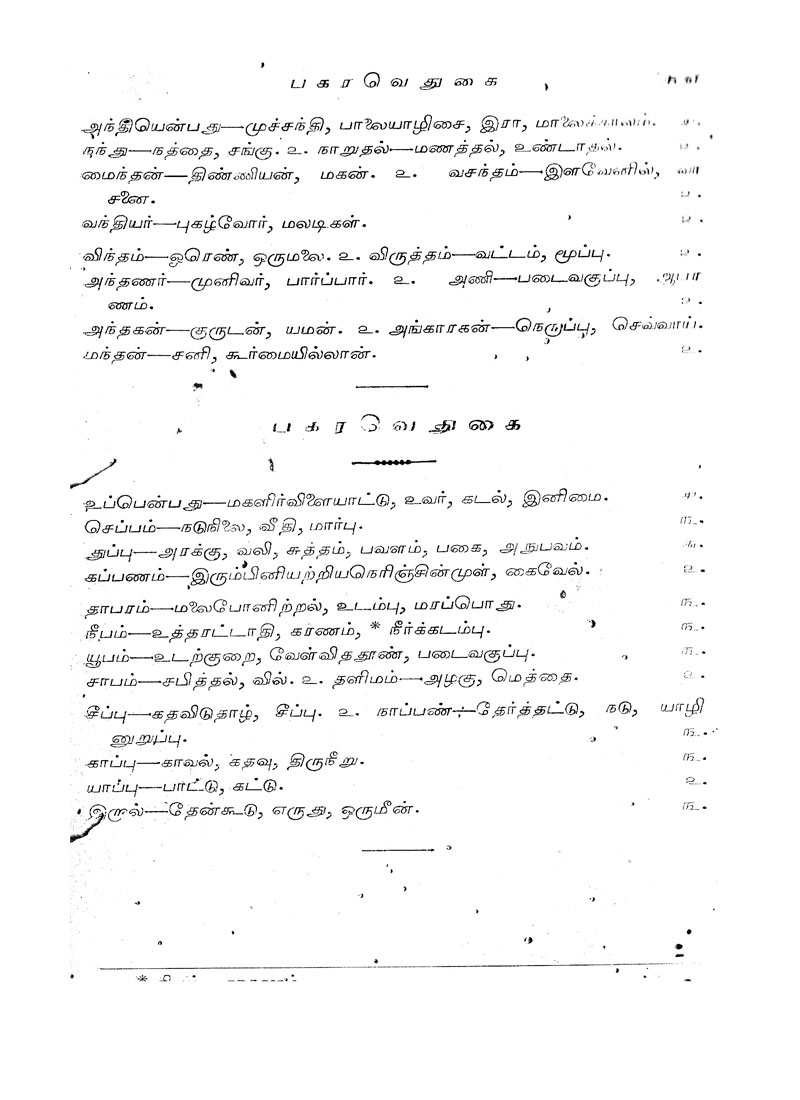 பகரவெதுகை
அந்தியென்பது—முச்சந்தி, பாலையாழிசை, இரா, மாலைக்காலம். ௪.
நந்து—நத்தை, சங்கு. உ. நாறுதல்—மணத்தல், உண்டாதல். உ.
மைந்தன்—திண்ணியன், மகன். உ. வசந்தம்—இளவேனில், வா
சனை. உ.
வந்தியர்—புகழ்வோர், மலடிகள். உ.
விந்தம்—ஒரெண், ஒருமலை. உ. விருத்தம்—வட்டம், மூப்பு. உ.
அந்தணர்—முனிவர், பார்ப்பார். உ. அணி—படைவகுப்பு, ஆபர
ணம். உ.
அந்தகன்—குருடன், யமன். உ. அங்காரகன்—நெருப்பு, செவ்வாய்.
மந்தன்—சனி, கூர்மையில்லான். உ.
பகரவெதுகை
உப்பென்பது—மகளிர்விளையாட்டு, உவர், கடல், இனிமை. ௪.
செப்பம்—நடுநிலை, வீதி, மார்பு. ௩.
துப்பு—அரக்கு, வலி, சுத்தம், பவளம், பகை, அநுபவம். ௬.
கப்பணம்—இரும்பினியற்றியநெரிஞ்சின்முள், கைவேல். உ.
தாபரம்—மலைபோனிற்றல், உடம்பு, மரப்பொது. ௩.
நீபம்—உத்தரட்டாதி, காரணம், * நீர்க்கடம்பு. ௩.
யூபம்—உடற்குறை, வேள்வித்தூண், படைவகுப்பு. ௩.
சாபம்—சபித்தல், வில். உ. தளிமம்—அழகு, மெத்தை. உ.
சீப்பு—கதவிடுதாழ், சீப்பு. உ. நாப்பண்—தேர்த்தட்டு, நடு, யாழி
னுறுப்பு. ௩.
காப்பு—காவல், கதவு, திருநீறு. ௩.
யாப்பு—பாட்டு, கட்டு. உ.
இறால்—தேன்கூடு, எருது, ஒருமீன். ௩.